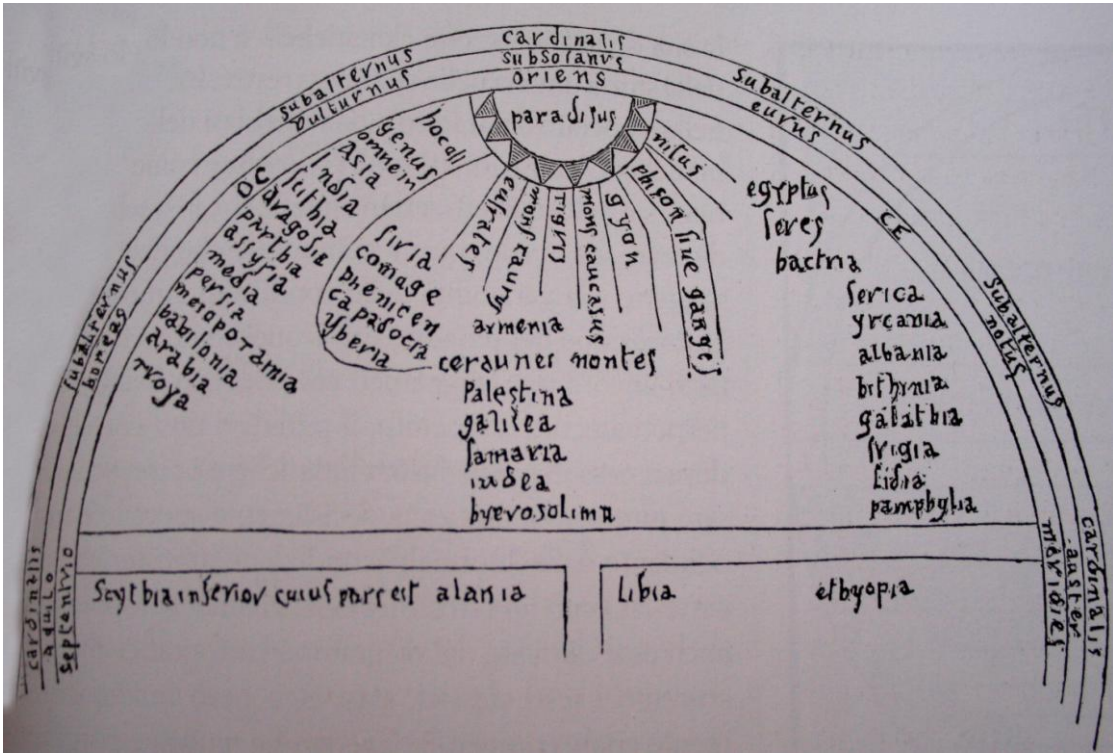 cardinalis
subsolanus
oriens
subalternus
vulturnus
subalternus
eurus
subalternus
boreas
subalternus
notus
cardinalis
aquilo
septentrio
cardinalis
auster
meridies
OC
CE
paradisus
hocast
genus
omnem
Asia
India
scithia
aragosie
partbia
assyria
media
persia
mesoporamia
babilonia
arabia
troya
siria
comage
phenicen
capadocia
yberia
eufrates
mons taurus
Tigris
mons caucasus
gyon
phison sive ganges
nilus
armenia
ceraunes montes
Palestina
galilea
samaria
iudea
byerosolima
egyptus
seres
bactria
serica
yrcania
albania
bithinia
galathia
frigia
Lidia
pamphylia
Scytbia inferior cuius pars est alania
Libia
etbyopia